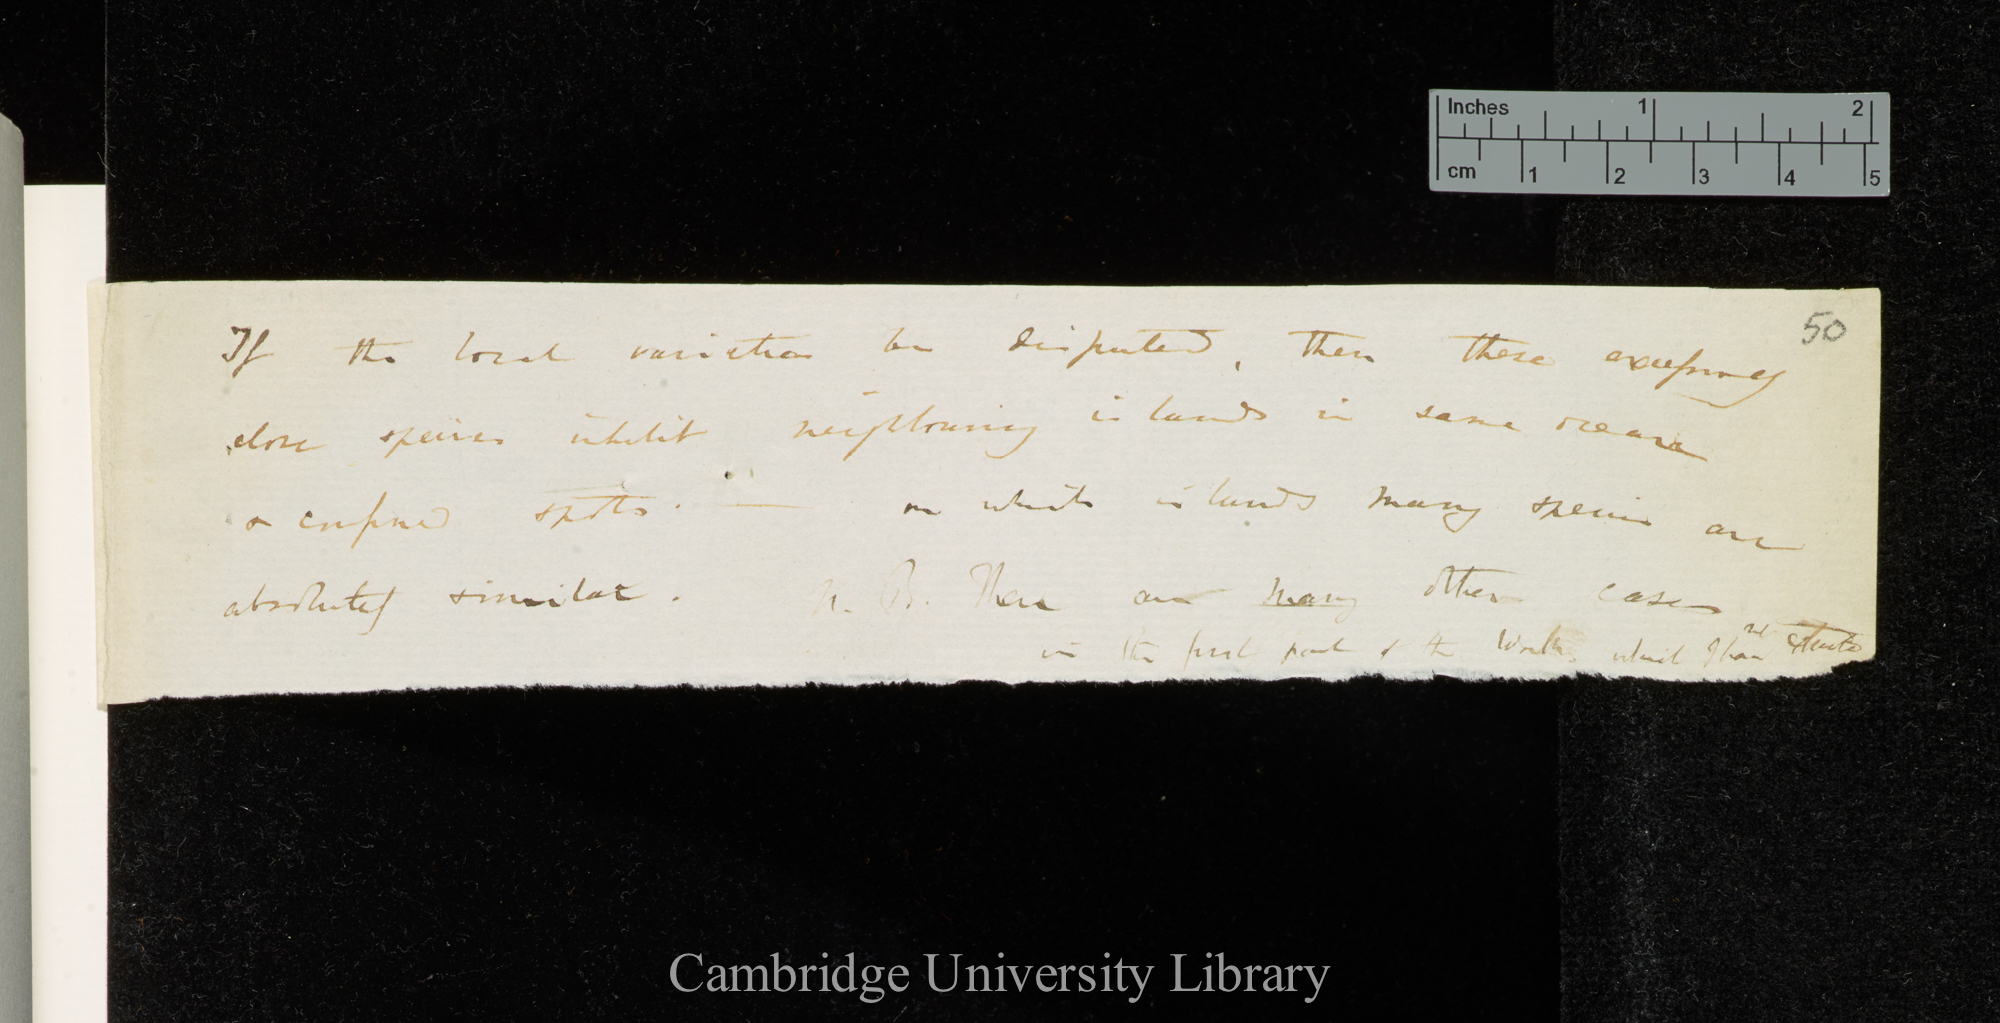 Inches 1 2
cm 1 2 3 4 5
50
If the local varieties be disputed, then these excessively
close species inhabit neighbouring islands in same oceans
& confined spots. — on which islands many species are
absolutely similar. N.B. There are many other cases
in the first part of the Work, which I have not extracted
Cambridge University Library